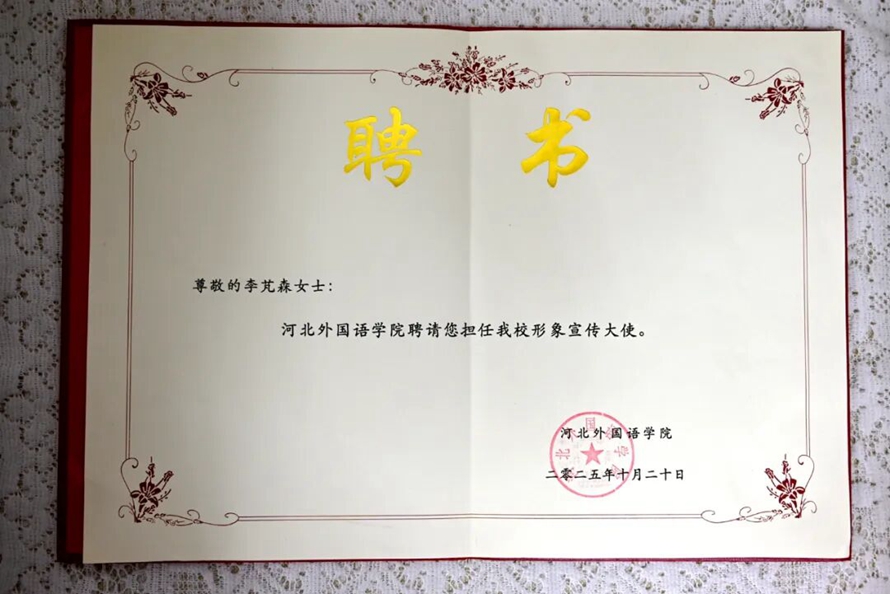 聘书
尊敬的李芃森女士：
河北外国语学院聘请您担任我校形象宣传大使。
河北外国语学院
二零二五年十月二十日